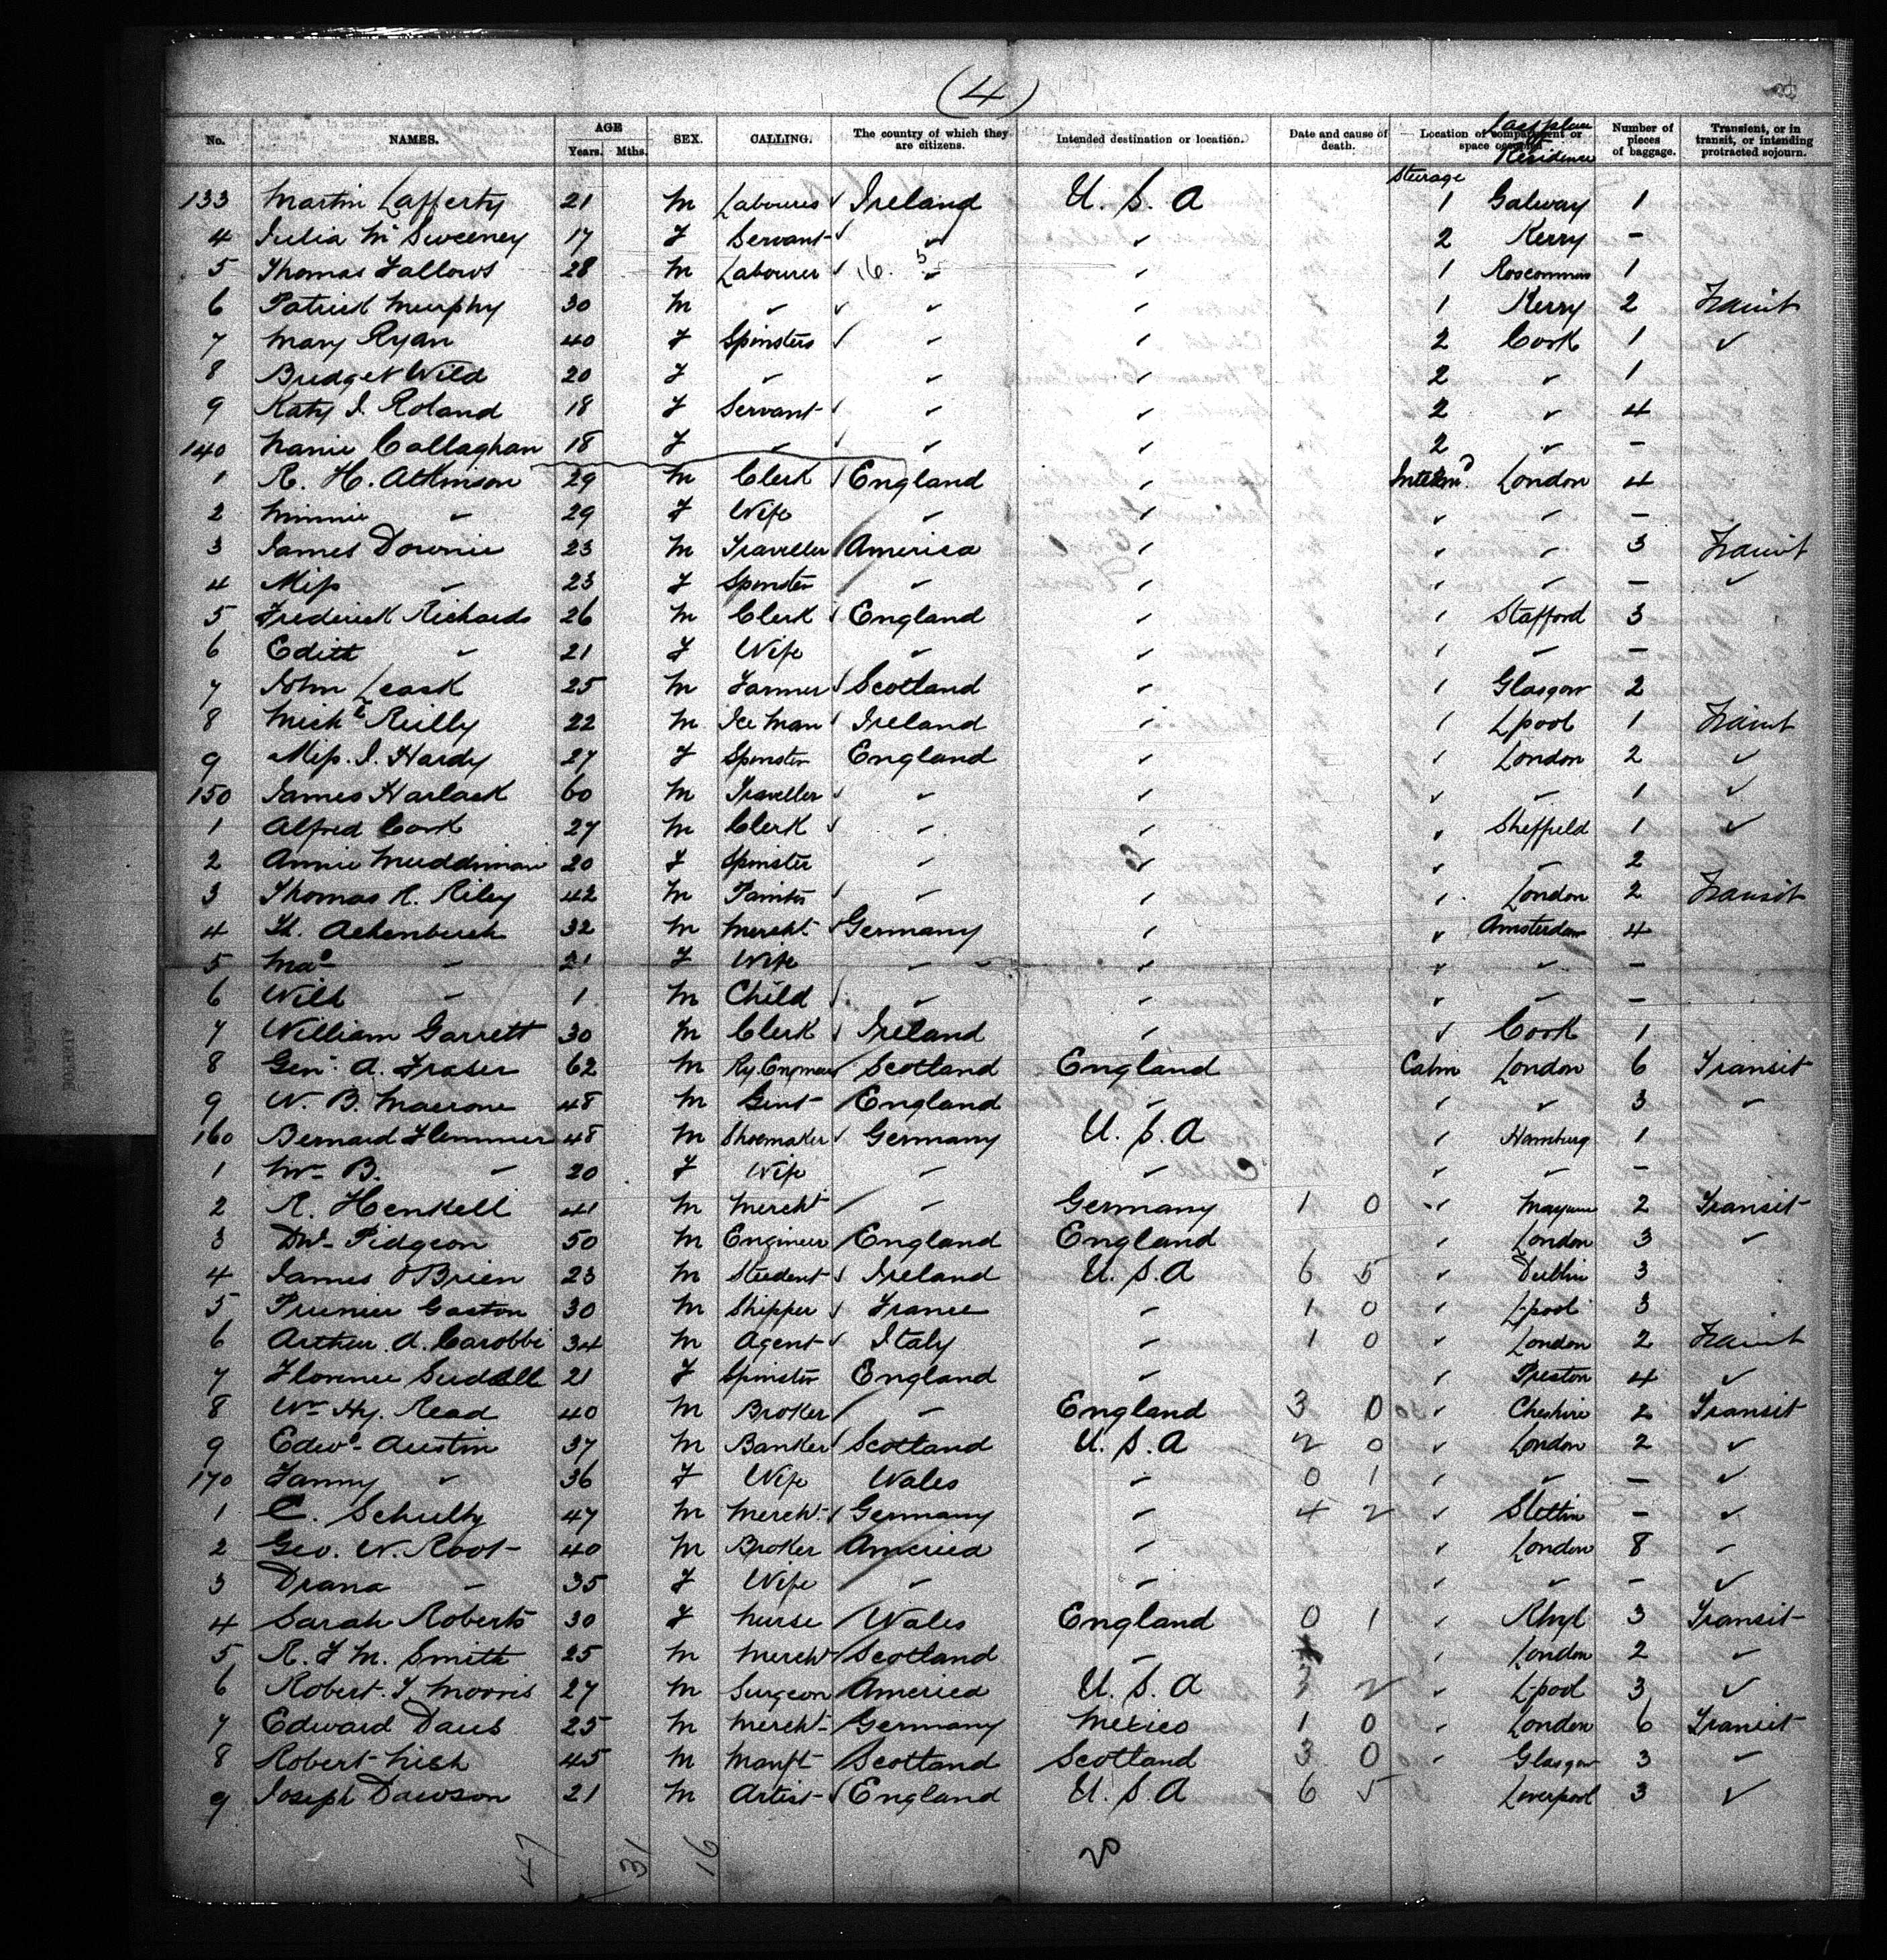 (4)
No. NAMES. AGE Years. Mths. SEX. CALLING. The country of which they are citizens. Intended destination or location. Date and cause of death. Location of compartment or space occupied Last place Residence Number of pieces of baggage. Transient, or in transit, or intending protracted sojourn.
Steerage
133 Martin Lafferty 21 M Labourer ✓ Ireland U.S.A 1 Galway 1
4 Julia McSweeney 17 F Servant ✓ " " 2 Kerry -
5 Thomas Fallows 28 M Labourer ✓ 16. 5 " " 1 Roscommon 1
6 Patrick Murphy 30 M " ✓ " " 1 Kerry 2 Transit
7 Mary Ryan 40 F Spinster ✓ " " 2 Cork 1 "
8 Bridget Wild 20 F " " " 2 " 1
9 Katy J. Roland 18 F Servant ✓ " " 2 " 4
140 Callaghan 18 F " ✓ " " 2 " -
1 R. H. Atkinson 29 M Clerk ✓ England " Intermd London 4
2 Minnie " 29 F Wife " " " " -
3 James Downie 23 M Traveller America " " " 3 Transit
4 Miss " 23 F Spinster " " " " - "
5 Frederick Richards 26 M Clerk ✓ England " " Stafford 3
6 Edith " 21 F Wife " " " " -
7 John Leask 25 M Farmer ✓ Scotland " " Glasgow 2
8 Michl Reilly 22 M Ice Man ✓ Ireland " " Lpool 1 Transit
9 Miss. J. Hardy 27 F Spinster England " " London 2 "
150 James Harlack 60 M Traveller ✓ " " " " 1 "
1 Alfred Cook 27 M Clerk ✓ " " " Sheffield 1 "
2 Annie Muddiman 20 F Spinster " " " " 2
3 Thomas R. Riley 42 M Painter ✓ " " " London 2 Transit
4 32 M Mercht ✓ Germany " " Amsterdam 4
5 " 21 F Wife " " " " -
6 " 1 M Child ✓ " " " " -
7 William Garrett 30 M Clerk ✓ Ireland " " Cork 1
8 Genl. A. Fraser 62 M Ry. Engineer Scotland England Cabin London 6 Transit
9 W. B. 48 M Gent England " " " 3 "
160 Bernard Flemmer 48 M Shoemaker ✓ Germany U.S.A " Hamburg 1
1 B. " 20 F Wife " " " " -
2 R. Henkell 41 M Mercht " Germany 1 0 " 2 Transit
3 Pidgeon 50 M Engineer England England " London 3 "
4 James O'Brien 23 M Student ✓ Ireland U.S.A 6 5 " Dublin 3
5 Prunier Gaston 30 M Shipper ✓ France " 1 0 " Lpool 3
6 Arthur. A. Carobbi 34 M Agent ✓ Italy " 1 0 " London 2 Transit
7 Florence Suddell 21 F Spinster England " " Preston 4 "
8 Wm Hy. Read 40 M Broker " England 3 0 " Cheshire 2 Transit
9 Edwd Austin 37 M Banker Scotland U.S.A 2 0 " London 2 "
170 Fanny " 36 F Wife Wales " 0 1 " " - "
1 C. Schultz 47 M Mercht ✓ Germany " 4 2 " Stettin - "
2 Geo. W. Root 40 M Broker America " " London 8 "
3 Diana " 35 F Wife " " " " - "
4 Sarah Roberts 30 F Nurse Wales England 0 1 " Rhyl 3 Transit
5 R. F M. Smith 25 M Mercht Scotland " " London 2 "
6 Robert. T Morris 27 M Surgeon America U.S.A 3 2 " Lpool 3 "
7 Edward 25 M Mercht Germany Mexico 1 0 " London 6 Transit
8 Robert 45 M Manft Scotland Scotland 3 0 " Glasgow 3 "
9 Joseph Dawson 21 M Artist ✓ England U.S.A 6 5 Liverpool 3 "
47 31 16 20